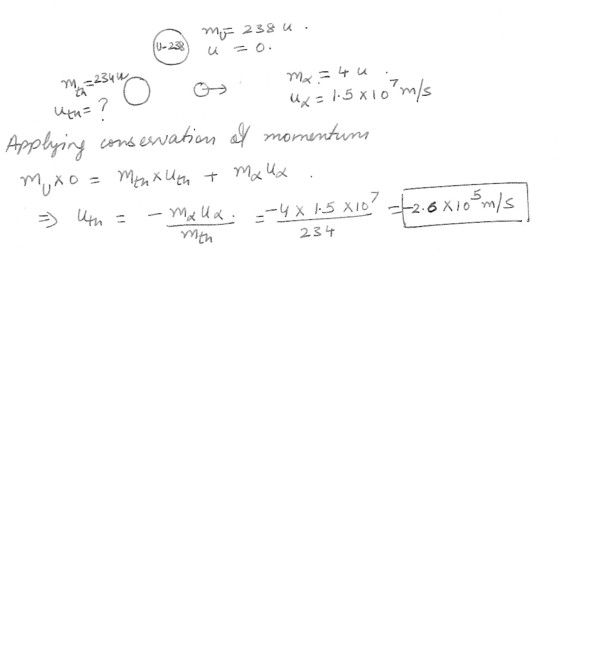 m_U = 238 u .
U-238
u = 0.
m_th = 234 u
u_th = ?
m_α = 4 u .
u_α = 1.5 × 10^7 m/s
Applying conservation of momentum
m_U × 0 = m_th × u_th + m_α u_α .
⇒ u_th = - m_α u_α . / m_th = -4 × 1.5 × 10^7 / 234 = -2.6 × 10^5 m/s